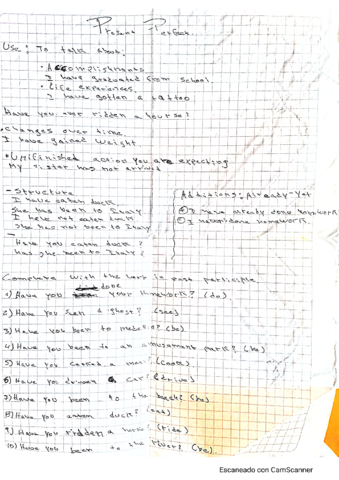 Present Perfect.
Use: To talk about:
• Accomplishments
I have graduated from school.
• Life experiences.
I have gotten a tattoo
Have you ever ridden a hourse?
• Changes over time.
I have gained weight
• Unifinished action you are expecting
My sister has not arrived
- Structure
I have eaten duck
She has been to Italy
I have not eaten duck
She has not been to Italy
Have you eaten duck?
Has she been to Italy?
Additions: Already - Yet
I have already done homework
Complete with the verb in past participle.
done
1) Have you your homework? (do)
2) Have you seen a ghost? (see)
3) Have you been to (be)
4) Have you been to an amusement park? (be)
5) Have you cooked a (cook)
6) Have you driven a car? (drive)
7) Have you been to the beach? (be)
8) Have you eaten duck? (eat)
9) Have you ridden a (ride)
10) Have you been to the river? (be).
Escaneado con CamScanner